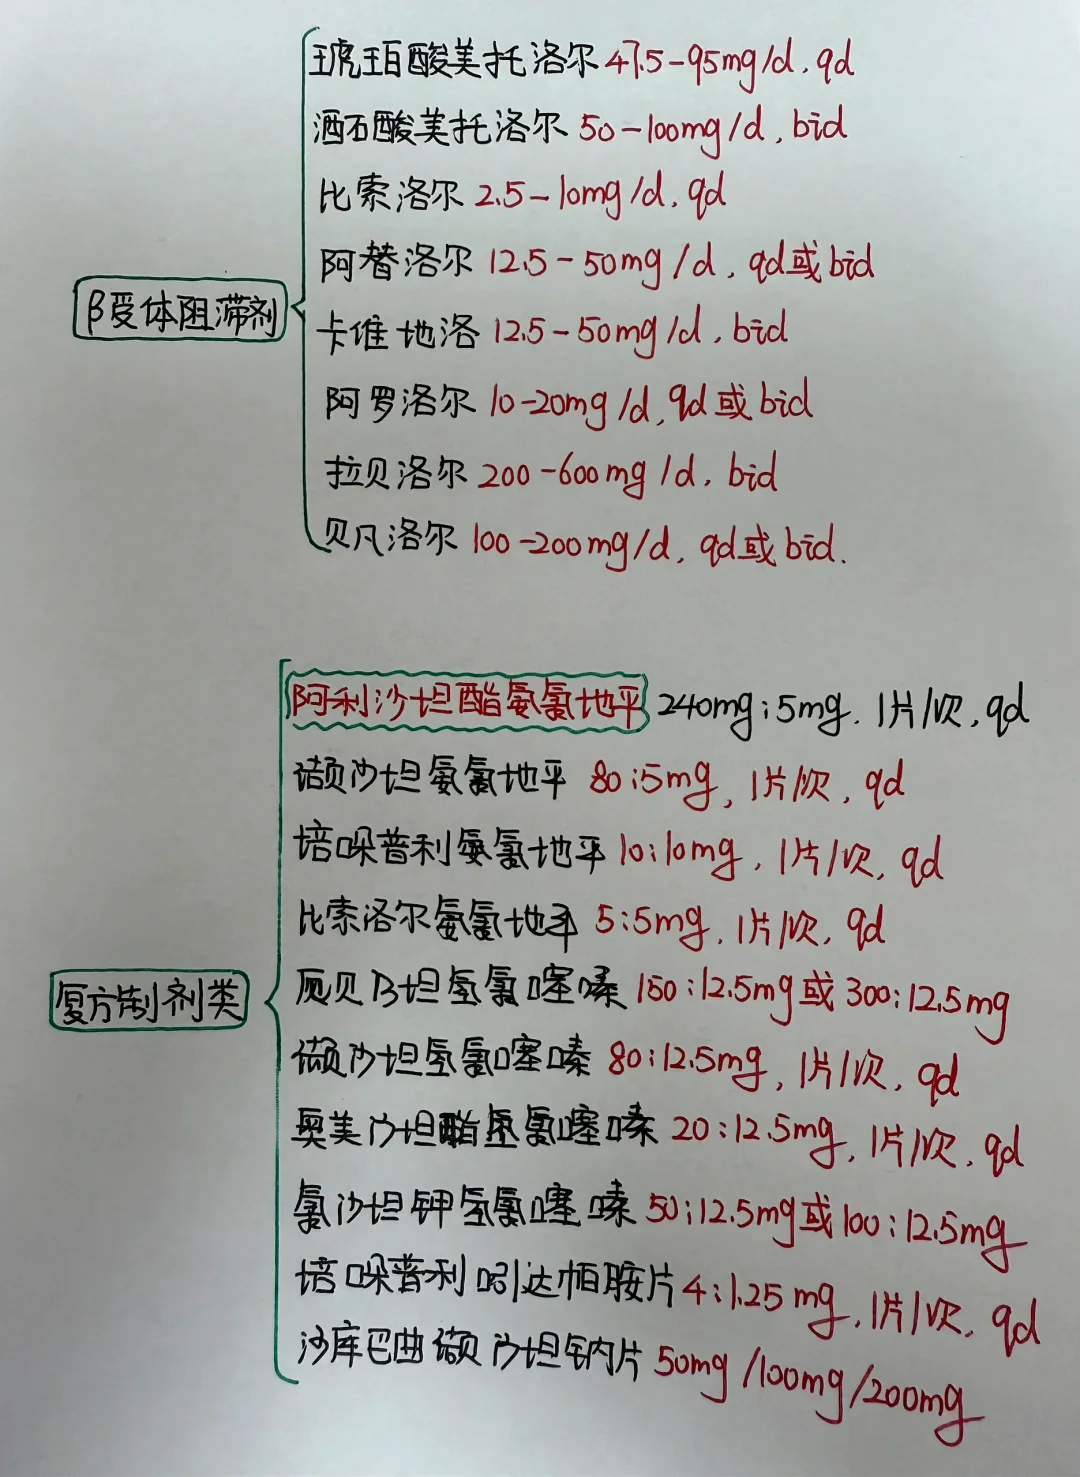 β受体阻滞剂
琥珀酸美托洛尔 47.5-95mg/d, qd
酒石酸美托洛尔 50-100mg/d, bid
比索洛尔 2.5-10mg/d, qd
阿替洛尔 12.5-50mg/d, qd或bid
卡维地洛 12.5-50mg/d, bid
阿罗洛尔 10-20mg/d, qd或bid
拉贝洛尔 200-600mg/d, bid
贝凡洛尔 100-200mg/d, qd或bid.
复方制剂类
阿利沙坦酯氨氯地平 240mg:5mg, 1片/次, qd
缬沙坦氨氯地平 80:5mg, 1片/次, qd
培哚普利氨氯地平 10:10mg, 1片/次, qd
比索洛尔氨氯地平 5:5mg, 1片/次, qd
厄贝沙坦氢氯噻嗪 150:12.5mg或300:12.5mg
缬沙坦氢氯噻嗪 80:12.5mg, 1片/次, qd
奥美沙坦酯氢氯噻嗪 20:12.5mg, 1片/次, qd
氯沙坦钾氢氯噻嗪 50:12.5mg或100:12.5mg
培哚普利吲达帕胺片 4:1.25mg, 1片/次, qd
沙库巴曲缬沙坦钠片 50mg/100mg/200mg